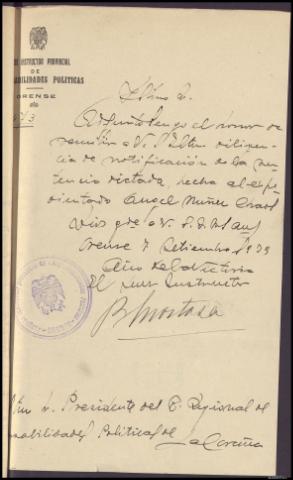 INSTRUCTOR PROVINCIAL
DE
ABILIDADES POLITICAS
ORENSE
Iltmo Sr.
Adjunto tengo el honor de
remitir a V. Iltma diligen-
cia de notificación de la sen-
tencia dictada, hecha al expe-
dientado Angel Muñiz
Dios gde a V. I. M. años
Orense 7 Setiembre 1939
Año de la Victoria
El Juez Instructor
Sr. Presidente del T. Regional de
sabilidades Politicas de La Coruña